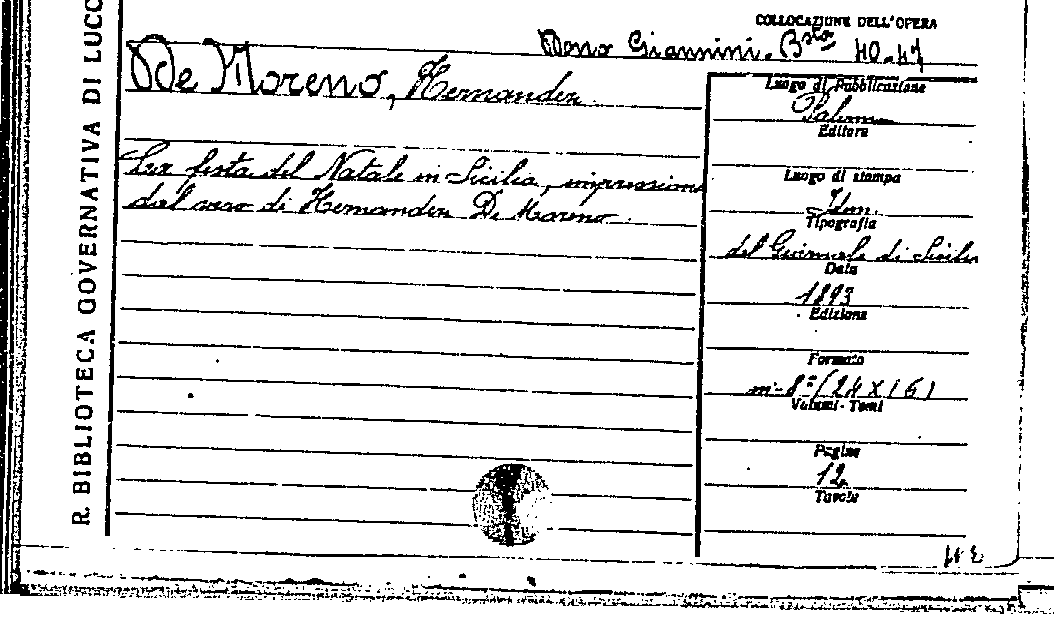 R. BIBLIOTECA GOVERNATIVA DI LUCC
COLLOCAZIONE DELL'OPERA
Dono Giannini. Bsta 40.47
De Moreno, Hernandez.
La festa del Natale in Sicilia, impressioni
dal vero di Hernandez De Moreno.
Luogo di Pubblicazione
Palermo
Editore
Luogo di stampa
Idem.
Tipografia
del Giornale di Sicilia
Data
1893
Edizione
Formato
in-8º (24 X 16)
Volumi - Tomi
Pagine
12
Tavole